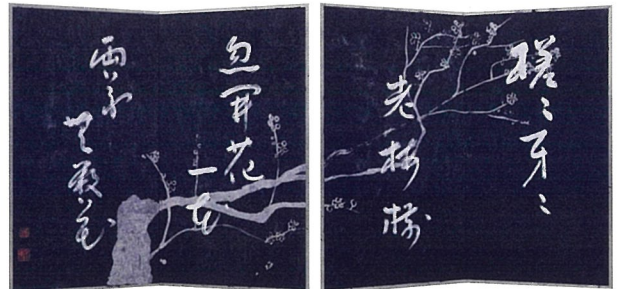 槎〻牙〻
老梅樹
忽開花
一花
両花
無数花